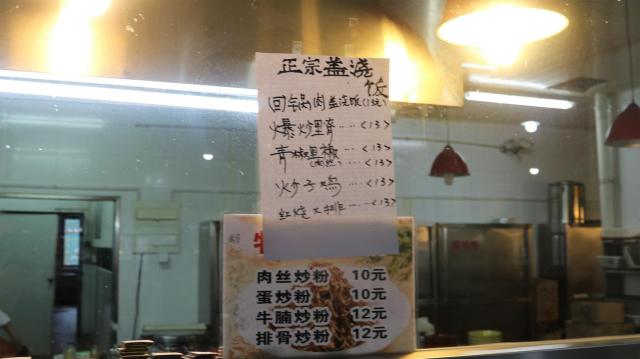 正宗盖浇
饭
回锅肉盖浇饭(13元)
爆炒里脊····<13>
青椒里椒····<13>
(肉丝)···<13>
炒子鸡····<13>
红烧大排····<13>
牛
肉丝炒粉 10元
蛋炒粉 10元
牛腩炒粉 12元
排骨炒粉 12元